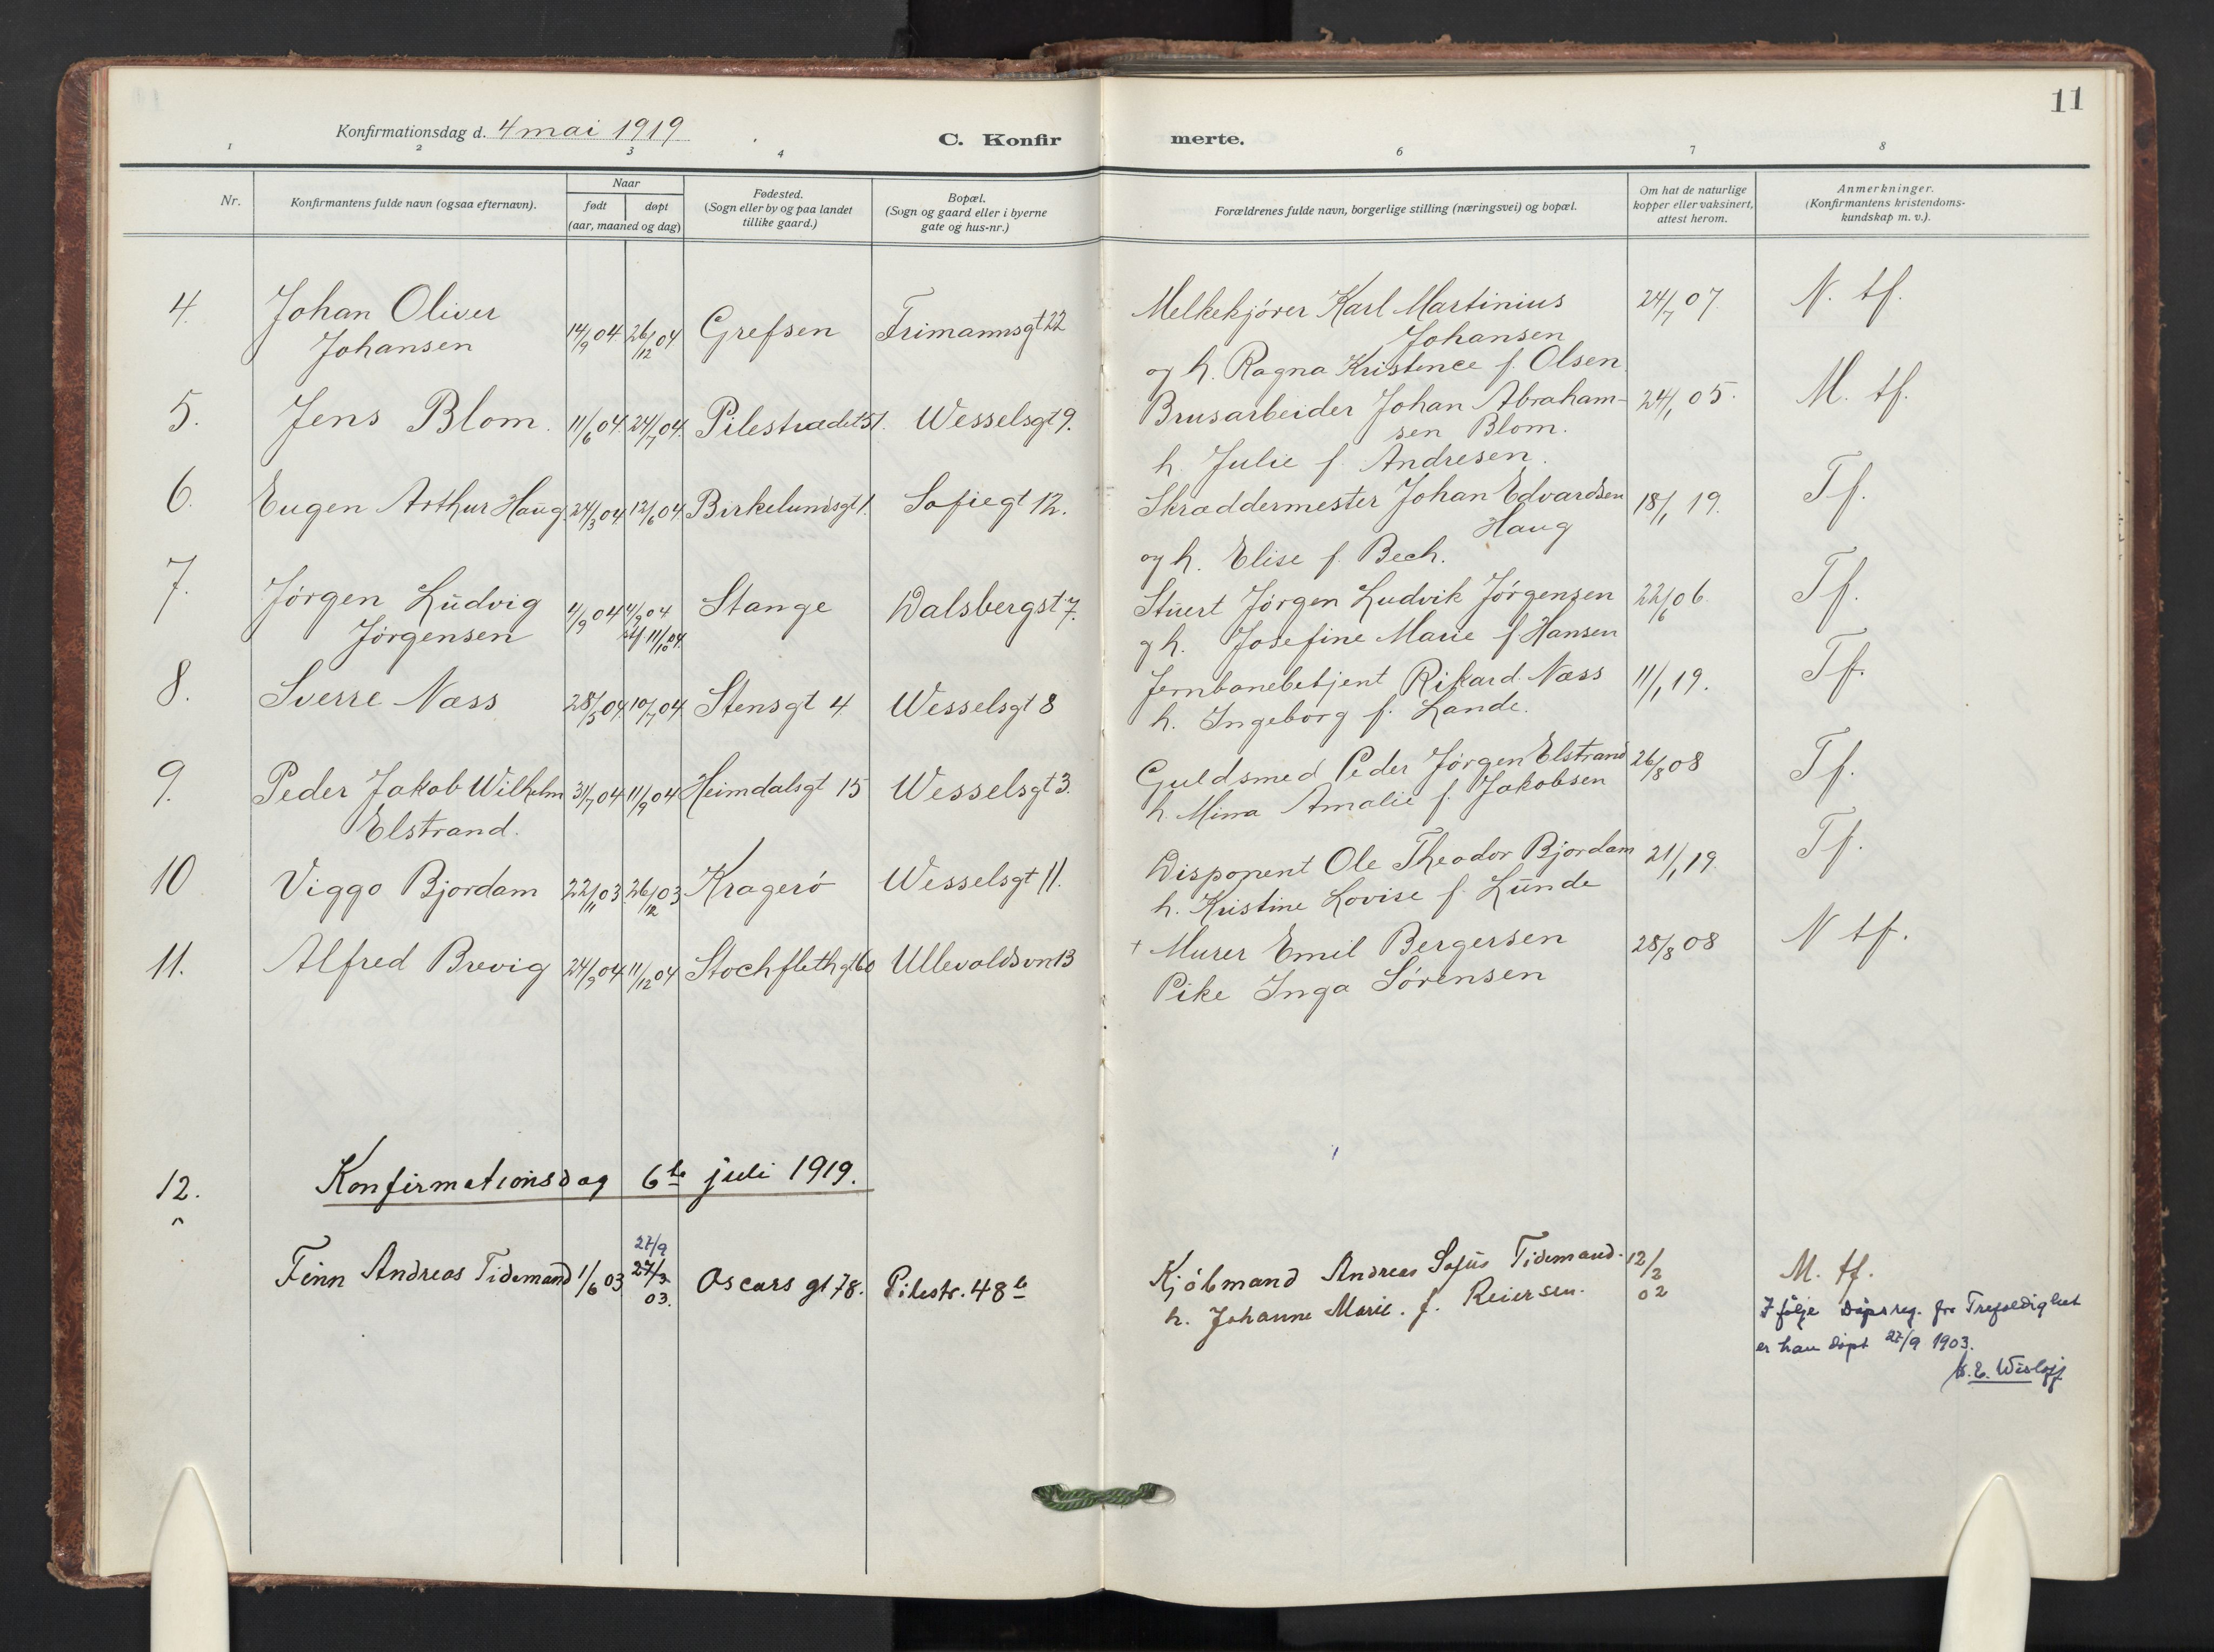 11
Konfirmationsdag d. 4 mai 1919
C. Konfir merte.
1 2 3 4 6 7 8
Nr.
Konfirmantens fulde navn (ogsaa efternavn).
Naar
født døpt
(aar, maaned og dag)
Fødested.
(Sogn eller by og paa landet
tillike gaard.)
Bopæl.
(Sogn og gaard eller i byerne
gate og hus-nr.)
Forældrenes fulde navn, borgerlige stilling (næringsvei) og bopæl.
Om hat de naturlige
kopper eller vaksinert,
attest herom.
Anmerkninger.
(Konfirmantens kristendoms-
kundskap m. v.).
4. Johan Oliver Johansen 14/9 04. 26/12 04 Grefsen Frimannsgt 22 Melkekjører Karl Martinius 24/7 07. N. tf.
Johansen
og h. Ragna Kristence f. Olsen.
5. Jens Blom. 11/6 04. 24/7 04. Pilestrædet 51. Wesselsgt 9. Brusarbeider Johan Abraham- 24/1 05. M. tf.
sen Blom.
h. Julie f. Andresen.
6. Eugen Arthur Haug 24/3 04 12/6 04 Birkelundsgt 1. Sofiegt 12. Skræddermester Johan Edvardsen 18/1 19. Tf.
Haug
og h. Elise f. Bech.
7. Jørgen Ludvig Jørgensen 4/9 04 4/9 04 stf 11/10 04. Stange Dalsbergst 7. Stuert Jørgen Ludvik Jørgensen 22/6 06. Tf.
g h. Josefine Marie f Hansen
8. Sverre Næss 28/5 04. 10/7 04. Stensgt 4. Wesselsgt 8 Jernbanebetjent Rikard Næss 11/1 19. Tf.
h. Ingeborg f. Lande.
9. Peder Jakob Wilhelm 31/7 04 11/9 04 Heimdalsgt 15 Wesselsgt 3. Guldsmed Peder Jørgen Elstrand 26/8 08 Tf.
Elstrand. h. Mina Amalie f. Jakobsen
10 Viggo Bjordam 22/11 03. 26/12 03 Kragerø Wesselsgt 11. Disponent Ole Theodor Bjordam 21/1 19. Tf.
h. Kristine Lovise f. Lunde
11. Alfred Brevig 24/9 04 11/12 04 Stochflethgt 60 Ullevoldsvn 13 + Murer Emil Bergersen 28/8 08 N tf.
Pike Inga Sørensen
12. Konfirmationsdag 6te juli 1919.
Finn Andreas Tidemand 1/6 03 27/9 27/3 03. Oscars gt 78. Pilestr. 48 b Kjøbmand Andreas Sofus Tidemand. 12/2 02 M. tf.
h. Johanne Marie. f. Reiersen.
Ifølje Døpsreg. fra Trefoldighet
er han døpt 27/9 1903.